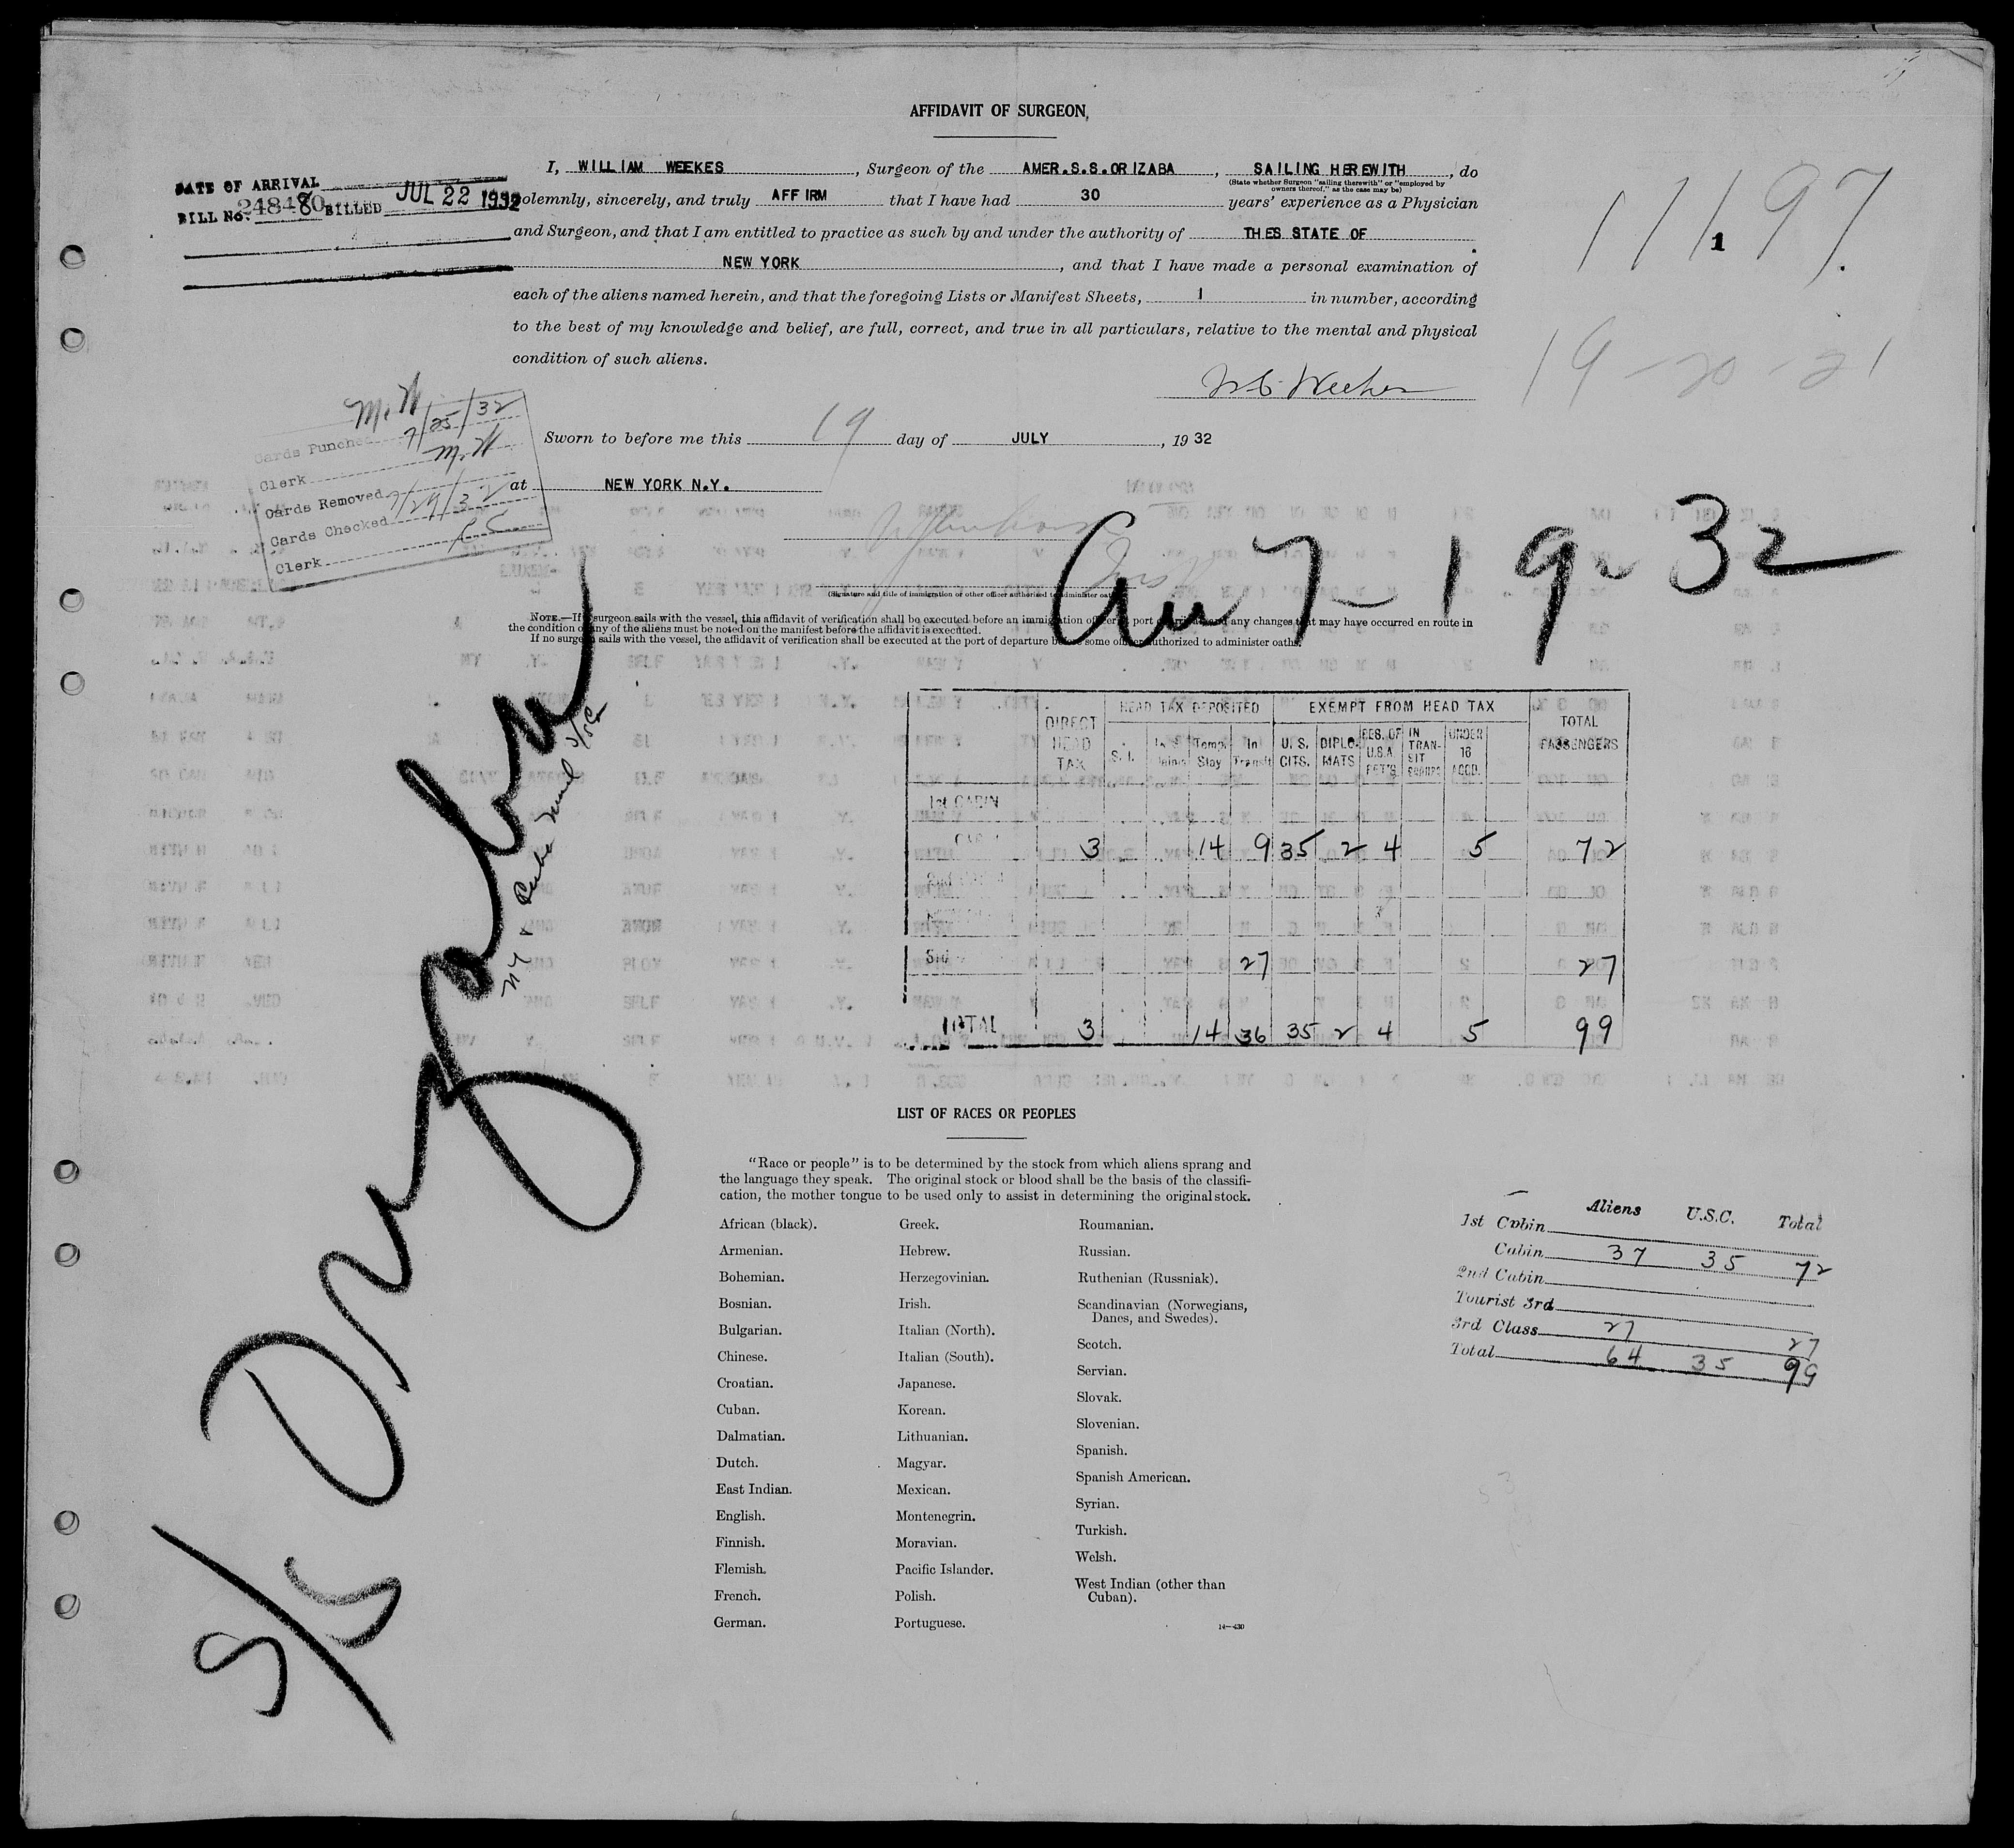 AFFIDAVIT OF SURGEON,
DATE OF ARRIVAL
BILL No. 248480 BILLED JUL 22 1932
I, WILLIAM WEEKES, Surgeon of the AMER.S.S.ORIZABA, SAILING HEREWITH, do
(State whether Surgeon "sailing therewith" or "employed by
owners thereof," as the case may be)
solemnly, sincerely, and truly AFFIRM that I have had 30 years' experience as a Physician
and Surgeon, and that I am entitled to practice as such by and under the authority of THES STATE OF
NEW YORK, and that I have made a personal examination of
each of the aliens named herein, and that the foregoing Lists or Manifest Sheets, 1 in number, according
to the best of my knowledge and belief, are full, correct, and true in all particulars, relative to the mental and physical
condition of such aliens.
11197.
1
19-20-21
Weekes
Sworn to before me this 19 day of JULY, 1932
at NEW YORK N.Y.
M.H.
Cards Punched 7/25/32
Clerk M.H
Cards Removed
Cards Checked 7/29/32
Clerk
(Signature and title of immigration or other officer authorized to administer oaths)
Arr 7-19-32
NOTE.—If surgeon sails with the vessel, this affidavit of verification shall be executed before an immigration officer port any changes that may have occurred en route in
the condition of any of the aliens must be noted on the manifest before the affidavit is executed.
If no surgeon sails with the vessel, the affidavit of verification shall be executed at the port of departure before some officer authorized to administer oaths.
S/S Orizaba
NY & Cuba Mail S/S Co
DIRECT HEAD TAX
HEAD TAX DEPOSITED
EXEMPT FROM HEAD TAX
TOTAL PASSENGERS
S.I. Temp. Stay In Transit U.S. CITS. DIPLO-MATS RES. OF U.S.A. RET'G IN TRAN-SIT UNDER 16 ACCD.
1st CABIN
CABIN 3 14 9 35 2 4 5 72
2nd CABIN
3rd 27 27
TOTAL 3 14 36 35 2 4 5 99
LIST OF RACES OR PEOPLES
"Race or people" is to be determined by the stock from which aliens sprang and
the language they speak. The original stock or blood shall be the basis of the classifi-
cation, the mother tongue to be used only to assist in determining the original stock.
African (black).
Armenian.
Bohemian.
Bosnian.
Bulgarian.
Chinese.
Croatian.
Cuban.
Dalmatian.
Dutch.
East Indian.
English.
Finnish.
Flemish.
French.
German.
Greek.
Hebrew.
Herzegovinian.
Irish.
Italian (North).
Italian (South).
Japanese.
Korean.
Lithuanian.
Magyar.
Mexican.
Montenegrin.
Moravian.
Pacific Islander.
Polish.
Portuguese.
Roumanian.
Russian.
Ruthenian (Russniak).
Scandinavian (Norwegians,
Danes, and Swedes).
Scotch.
Servian.
Slovak.
Slovenian.
Spanish.
Spanish American.
Syrian.
Turkish.
Welsh.
West Indian (other than
Cuban).
14—430
Aliens U.S.C. Total
1st Cabin
Cabin 37 35 72
2nd Cabin
Tourist 3rd
3rd Class 27 27
Total 64 35 99